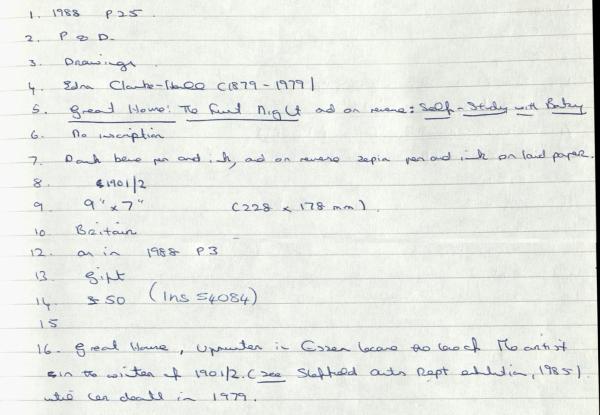 1. 1988 P25.
2. P & D.
3. Drawings
4. Edna Clarke-Hall (1879 - 1979)
5. Great House: The First Night and on reverse: Self-Study with Baby
6. No inscription
7. Dark brown pen and ink, and on reverse sepia pen and ink on laid paper.
8. 1901/2
9 9" x 7" (228 x 178 mm).
10 Britain
12. as in 1988 P3
13. Gift
14. £50 (Ins £4084)
15
16. Great House, Upminster in Essex became the home of the artist
in the winter of 1901/2. (see Sheffield Arts Dept exhibition, 1985)
until her death in 1979.